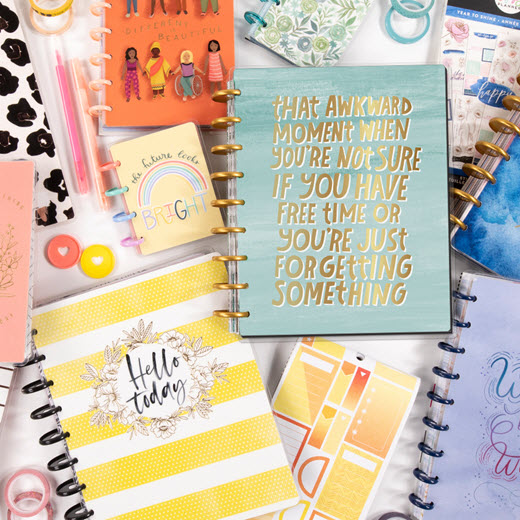 DIFFERENT IS
BEAUTIFUL
YEAR TO SHINE
happy
THAT AWKWARD
MOMENT WHEN
YOU'RE NOT SURE
IF YOU HAVE
FREE TIME OR
YOU'RE JUST
FORGETTING
SOMETHING
the future looks
BRIGHT
Hello
today